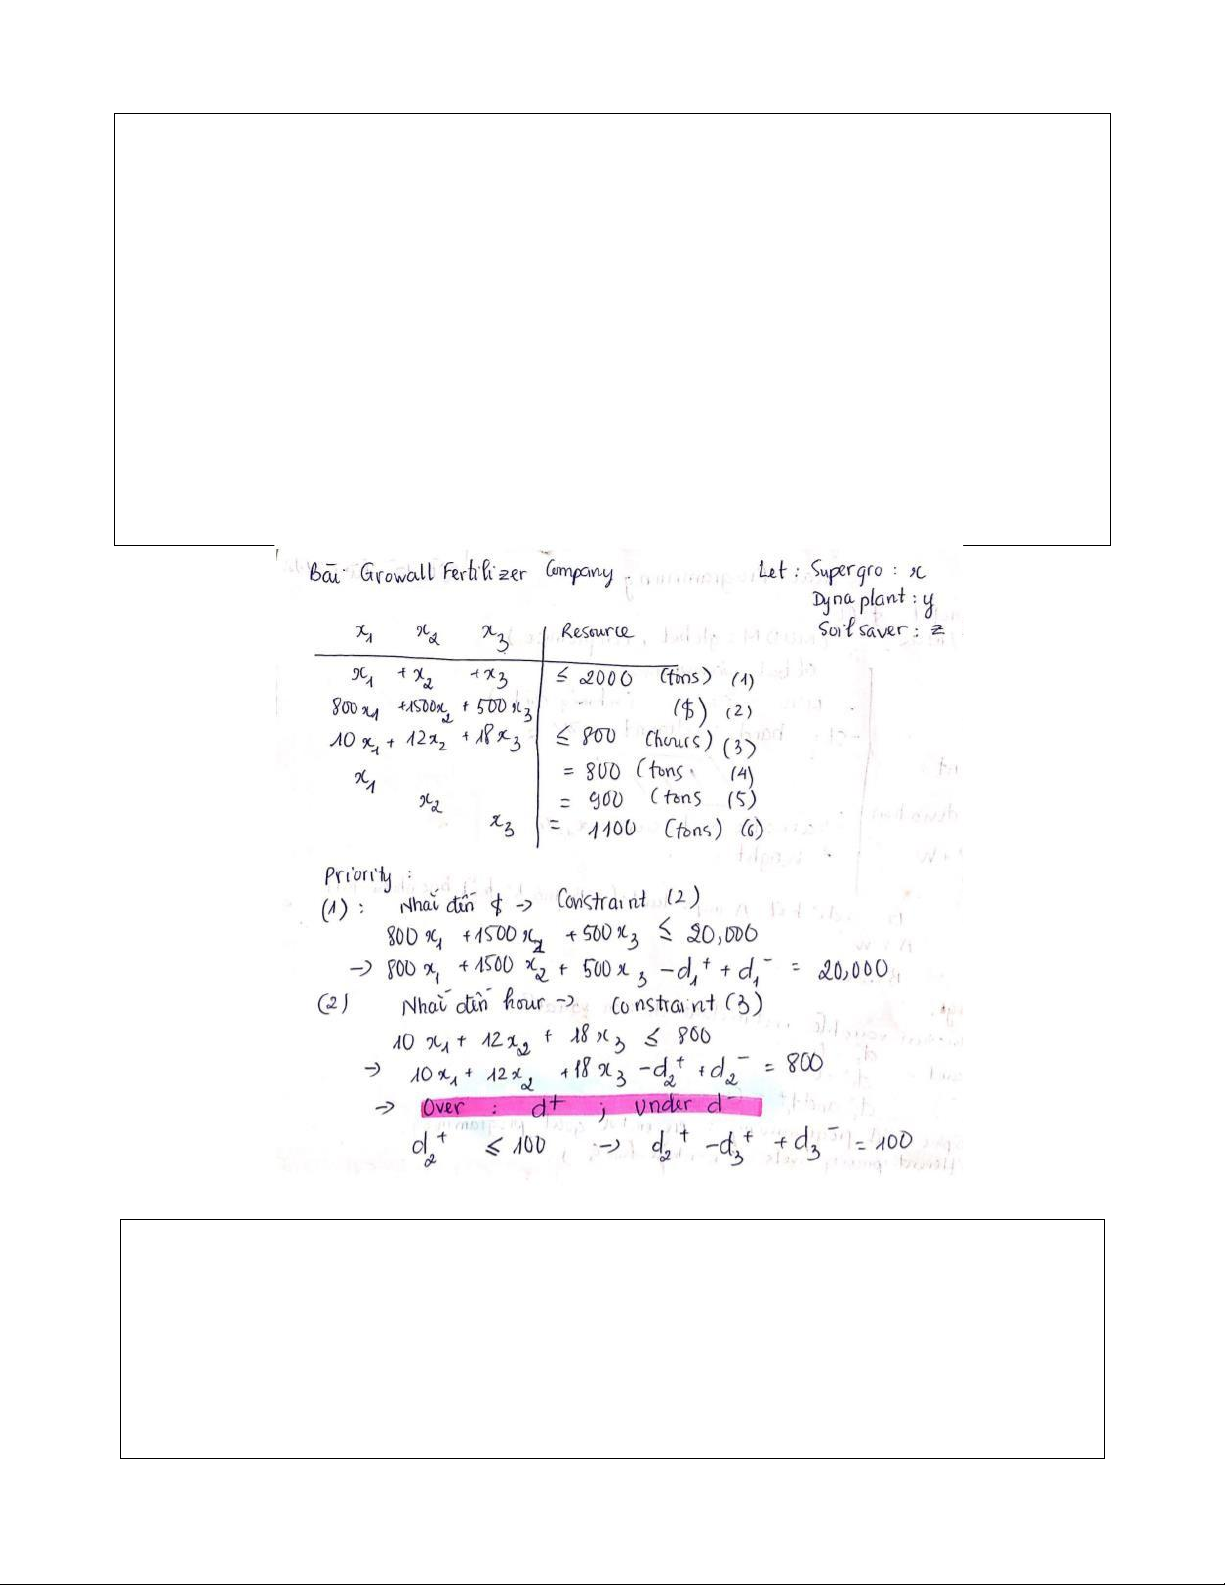 Bài Growall Fertilizer Company. Let : Supergro : x
Dyna plant : y
Soil saver : z
x₁ x₂ x₃ Resource
x₁ + x₂ + x₃ ≤ 2000 (tons) (1)
800x₁ + 1500x₂ + 500x₃ ($) (2)
10x₁ + 12x₂ + 18x₃ ≤ 800 (hours) (3)
x₁ = 800 (tons (4)
x₂ = 900 (tons (5)
x₃ = 1100 (tons) (6)
Priority :
(1) : Nhắc đến $ → Constraint (2)
800x₁ + 1500x₂ + 500x₃ ≤ 20,000
→ 800x₁ + 1500x₂ + 500x₃ - d₁⁺ + d₁⁻ = 20,000
(2) Nhắc đến hour → Constraint (3)
10x₁ + 12x₂ + 18x₃ ≤ 800
→ 10x₁ + 12x₂ + 18x₃ - d₂⁺ + d₂⁻ = 800
→ Over : d⁺ ; Under d⁻
d₂⁺ ≤ 100 → d₂⁺ - d₃⁺ + d₃⁻ = 100